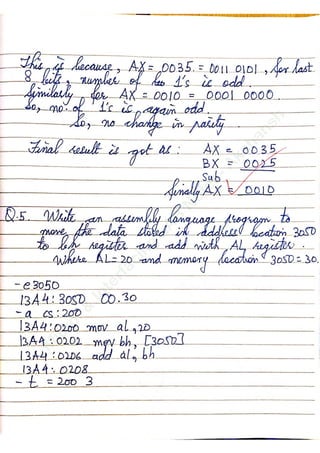 This is because, AX = 0035 = 0011 0101, for last
8 bits, number of 1's is odd.
Similarly, for AX = 0010 = 0001 0000.
So, no. of 1's is again odd.
So, no change in parity.
Final result is got as: AX = 0035
BX = 0025
Sub
finally AX = 0010
Q.5. Write an assembly language program to
move the data stored in address location 3050
to bh register and add with AL register.
Where AL=20 and memory location 3050=30.
-e3050
13A4:3050 00.30
-a cs:200
13A4:0200 mov al,20
13A4:0202 mov bh, [3050]
13A4:0206 add al, bh
13A4:0208
-t=200 3